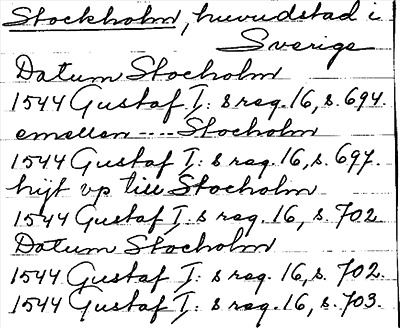 Stockholm, huvudstad i
Sverige
Datum Stocholm
1544 Gustaf I: s reg. 16, s. 694.
emellan ---- Stocholm
1544 Gustaf I: s reg. 16, s. 697.
hijt vp till Stocholm
1544 Gustaf I: s reg. 16, s. 702
Datum Stocholm
1544 Gustaf I: s reg. 16, s. 702.
1544 Gustaf I: s reg. 16, s. 703.